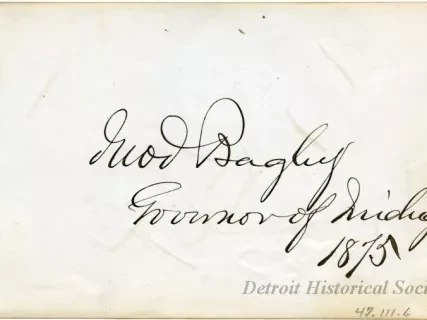 Jno J Bagley
Governor of Michig
1875
Detroit Historical Soci
47.111.6